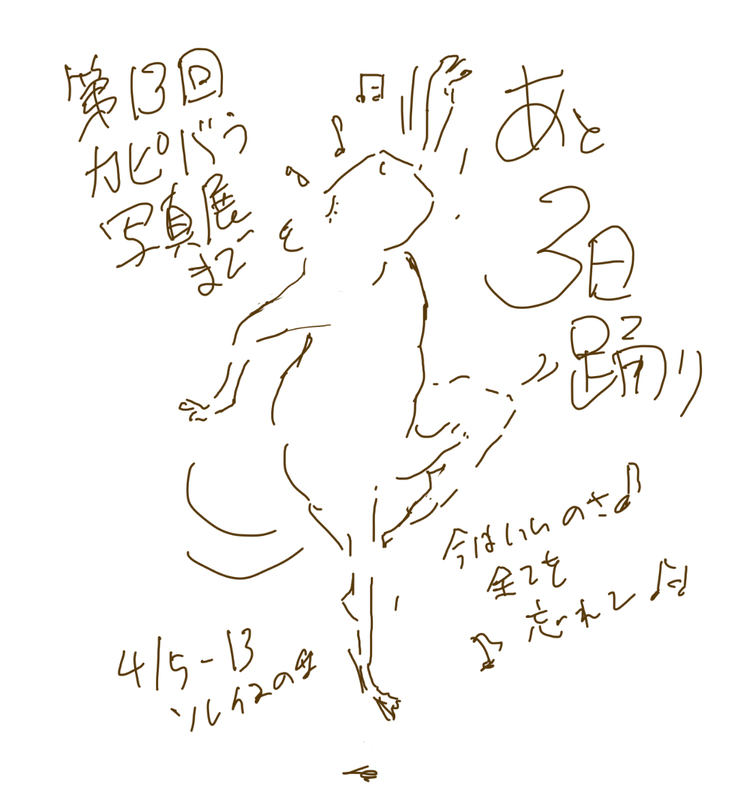 第13回
カピバラ
写真展
まで
あと
3日
踊り
今はいいのさ♪
全てを
♪忘れて♫
4/5-13
ソレイユの丘